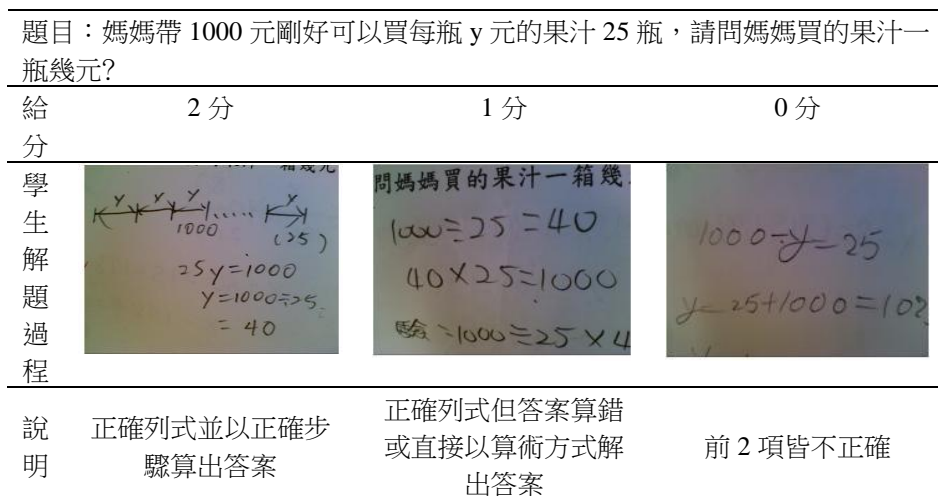 題目：媽媽帶 1000 元剛好可以買每瓶 y 元的果汁 25 瓶，請問媽媽買的果汁一
瓶幾元?
給分
2 分
1 分
0 分
學生解題過程
y y y y
1000
(25)
25y=1000
y=1000÷25
=40
問媽媽買的果汁一箱幾
1000÷25=40
40×25=1000
驗:1000÷25×4
1000÷y=25
y=25+1000=102
說明
正確列式並以正確步
驟算出答案
正確列式但答案算錯
或直接以算術方式解
出答案
前 2 項皆不正確